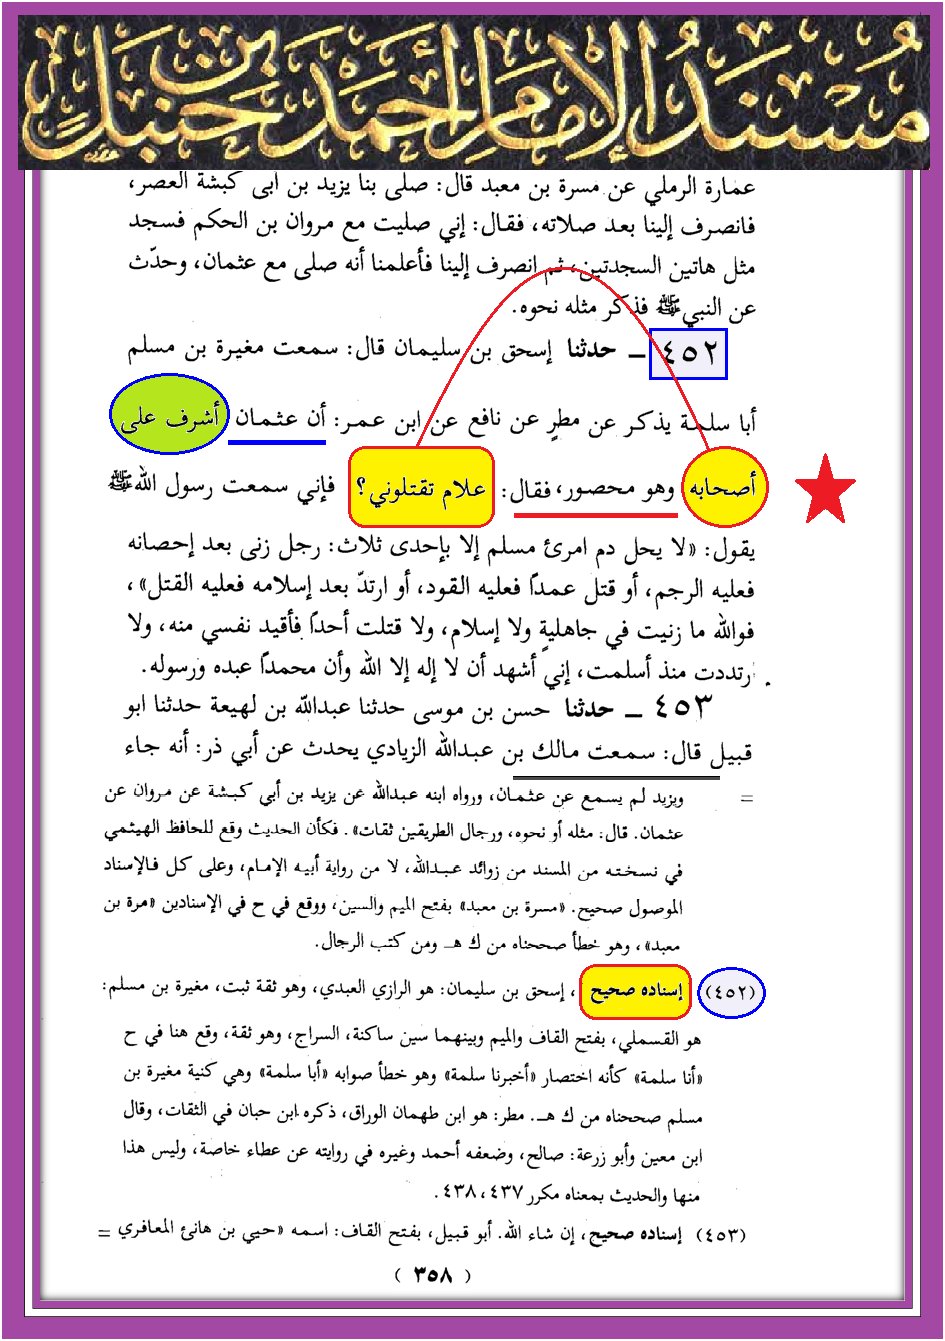 مسند الإمام أحمد بن حنبل
عمارة الرملي عن مسرة بن معبد قال: صلى بنا يزيد بن أبى كبشة العصر،
فانصرف إلينا بعد صلاته، فقال: إني صليت مع مروان بن الحكم فسجد
مثل هاتين السجدتين، ثم انصرف إلينا فأعلمنا أنه صلى مع عثمان، وحدّث
عن النبي ﷺ فذكر مثله نحوه.
٤٥٢ ــ حدثنا إسحق بن سليمان قال: سمعت مغيرة بن مسلم
أبا سلمة يذكر عن مطرٍ عن نافع عن ابن عمر: أن عثمان أشرف على
أصحابه وهو محصور، فقال: علام تقتلوني؟ فإني سمعت رسول الله ﷺ
يقول: «لا يحل دم امرئ مسلم إلا بإحدى ثلاث: رجل زنى بعد إحصانه
فعليه الرجم، أو قتل عمداً فعليه القود، أو ارتدّ بعد إسلامه فعليه القتل»،
فوالله ما زنيت في جاهليةٍ ولا إسلام، ولا قتلت أحداً فأقيد نفسي منه، ولا
رتددت منذ أسلمت، إني أشهد أن لا إله إلا الله وأن محمداً عبده ورسوله.
٤٥٣ ــ حدثنا حسن بن موسى حدثنا عبدالله بن لهيعة حدثنا ابو
قبيل قال: سمعت مالك بن عبدالله الزيادي يحدث عن أبي ذر: أنه جاء
= ويزيد لم يسمع عن عثمان، ورواه ابنه عبدالله عن يزيد بن أبي كبشة عن مروان عن
عثمان. قال: مثله أو نحوه، ورجال الطريقين ثقات». فكأن الحديث وقع للحافظ الهيثمي
في نسخته من المسند من زوائد عبدالله، لا من رواية أبيه الإمام، وعلى كل فالإسناد
الموصول صحيح. «مسرة بن معبد» بفتح الميم والسين، ووقع في ح في الإسنادين «مرة بن
معبد»، وهو خطأ صححناه من ك هـ ومن كتب الرجال.
(٤٥٢) إسناده صحيح، إسحق بن سليمان: هو الرازي العبدي، وهو ثقة ثبت، مغيرة بن مسلم:
هو القسملي، بفتح القاف والميم وبينهما سين ساكنة، السراج، وهو ثقة، وقع هنا في ح
«أنا سلمة» كأنه اختصار «أخبرنا سلمة» وهو خطأ صوابه «أبا سلمة» وهي كنية مغيرة بن
مسلم صححناه من ك هـ. مطر: هو ابن طهمان الوراق، ذكره ابن حبان في الثقات، وقال
ابن معين وأبو زرعة: صالح، وضعفه أحمد وغيره في روايته عن عطاء خاصة، وليس هذا
منها والحديث بمعناه مكرر ٤٣٧، ٤٣٨.
(٤٥٣) إسناده صحيح، إن شاء الله. أبو قبيل، بفتح القاف: اسمه «حيي بن هانئ المعافري =
( ٣٥٨ )